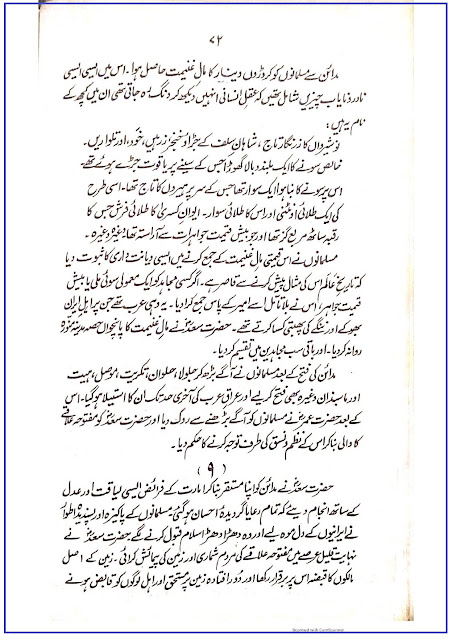 ۷۲
مدائن سے مسلمانوں کو کروڑوں دینار کا مالِ غنیمت حاصل ہوا۔ اس میں ایسی ایسی
نادر و نایاب چیزیں شامل تھیں کہ عقلِ انسانی انہیں دیکھ کر دنگ رہ جاتی تھی ان میں کچھ کے
نام یہ ہیں:
نوشیرواں کا زرنگار تاج، شاہانِ سلف کے جڑاؤ خنجر، زرہیں، خود، اور تلواریں۔
خالص سونے کا ایک بلند و بالا گھوڑا جس کے سینے پر یاقوت جڑے ہوئے تھے۔
اس پر سونے کا بنا ہوا ایک سوار تھا جس کے سر پر ہیروں کا تاج تھا۔ اسی طرح
کی ایک طلائی اونٹنی اور اس کا طلائی سوار۔ ایوانِ کسریٰ کا طلائی فرش جس کا
رقبہ ساٹھ مربع گز تھا اور جو بیش قیمت جواہرات سے آراستہ تھا۔ وغیرہ وغیرہ۔
مسلمانوں نے اس قیمتی مالِ غنیمت کے جمع کرنے میں ایسی دیانت داری کا ثبوت دیا
کہ تاریخِ عالم اس کی مثال پیش کرنے سے قاصر ہے۔ اگر کسی مجاہد کو ایک معمولی سوئی ملی یا بیش
قیمت جواہر، اُس نے بلا تامل اسے امیر کے پاس جمع کرا دیا۔ یہ وہی عرب تھے جن پر اہلِ ایران
بھوکے اور ننگے کی پھبتی کسا کرتے تھے۔ حضرت سعدؓ نے مالِ غنیمت کا پانچواں حصہ مدینہ منورہ
روانہ کر دیا۔ اور باقی سب مجاہدین میں تقسیم کر دیا۔
مدائن کی فتح کے بعد مسلمانوں نے آگے بڑھ کر جلولا، حلوان، تکریت، موصل، ہیت
اور ماسبذان وغیرہ بھی فتح کر لیے اور عراقِ عرب کی آخری حد تک ان کا استیلا ہو گیا۔ اس
کے بعد حضرت عمرؓ نے مسلمانوں کو آگے بڑھنے سے روک دیا اور حضرت سعدؓ کو مفتوحہ علاقے
کا والی بنا کر اس کے نظم و نسق کی طرف توجہ کرنے کا حکم دیا۔
(۹)
حضرت سعدؓ نے مدائن کو اپنا مستقر بنا کر امارت کے فرائض ایسی لیاقت اور عدل
کے ساتھ انجام دیئے کہ تمام رعایا گرویدۂ احسان ہو گئی۔ مسلمانوں کے پاکیزہ اور پسندیدہ اطوار
نے ایرانیوں کے دل موہ لیے اور وہ دھڑا دھڑ اسلام قبول کرنے لگے۔ حضرت سعدؓ نے
نہایت قلیل عرصے میں مفتوحہ علاقے کی مردم شماری اور زمین کی پیمائش کرائی۔ زمین کے اصل
مالکوں کا قبضہ اس پر برقرار رکھا اور دُور افتادہ زمین پر مستحق اور اہل لوگوں کو قابض ہونے
Scanned with CamScanner